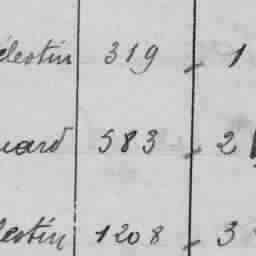 élestin 319 - 1
uard 583 - 2
lestin 1208 - 3